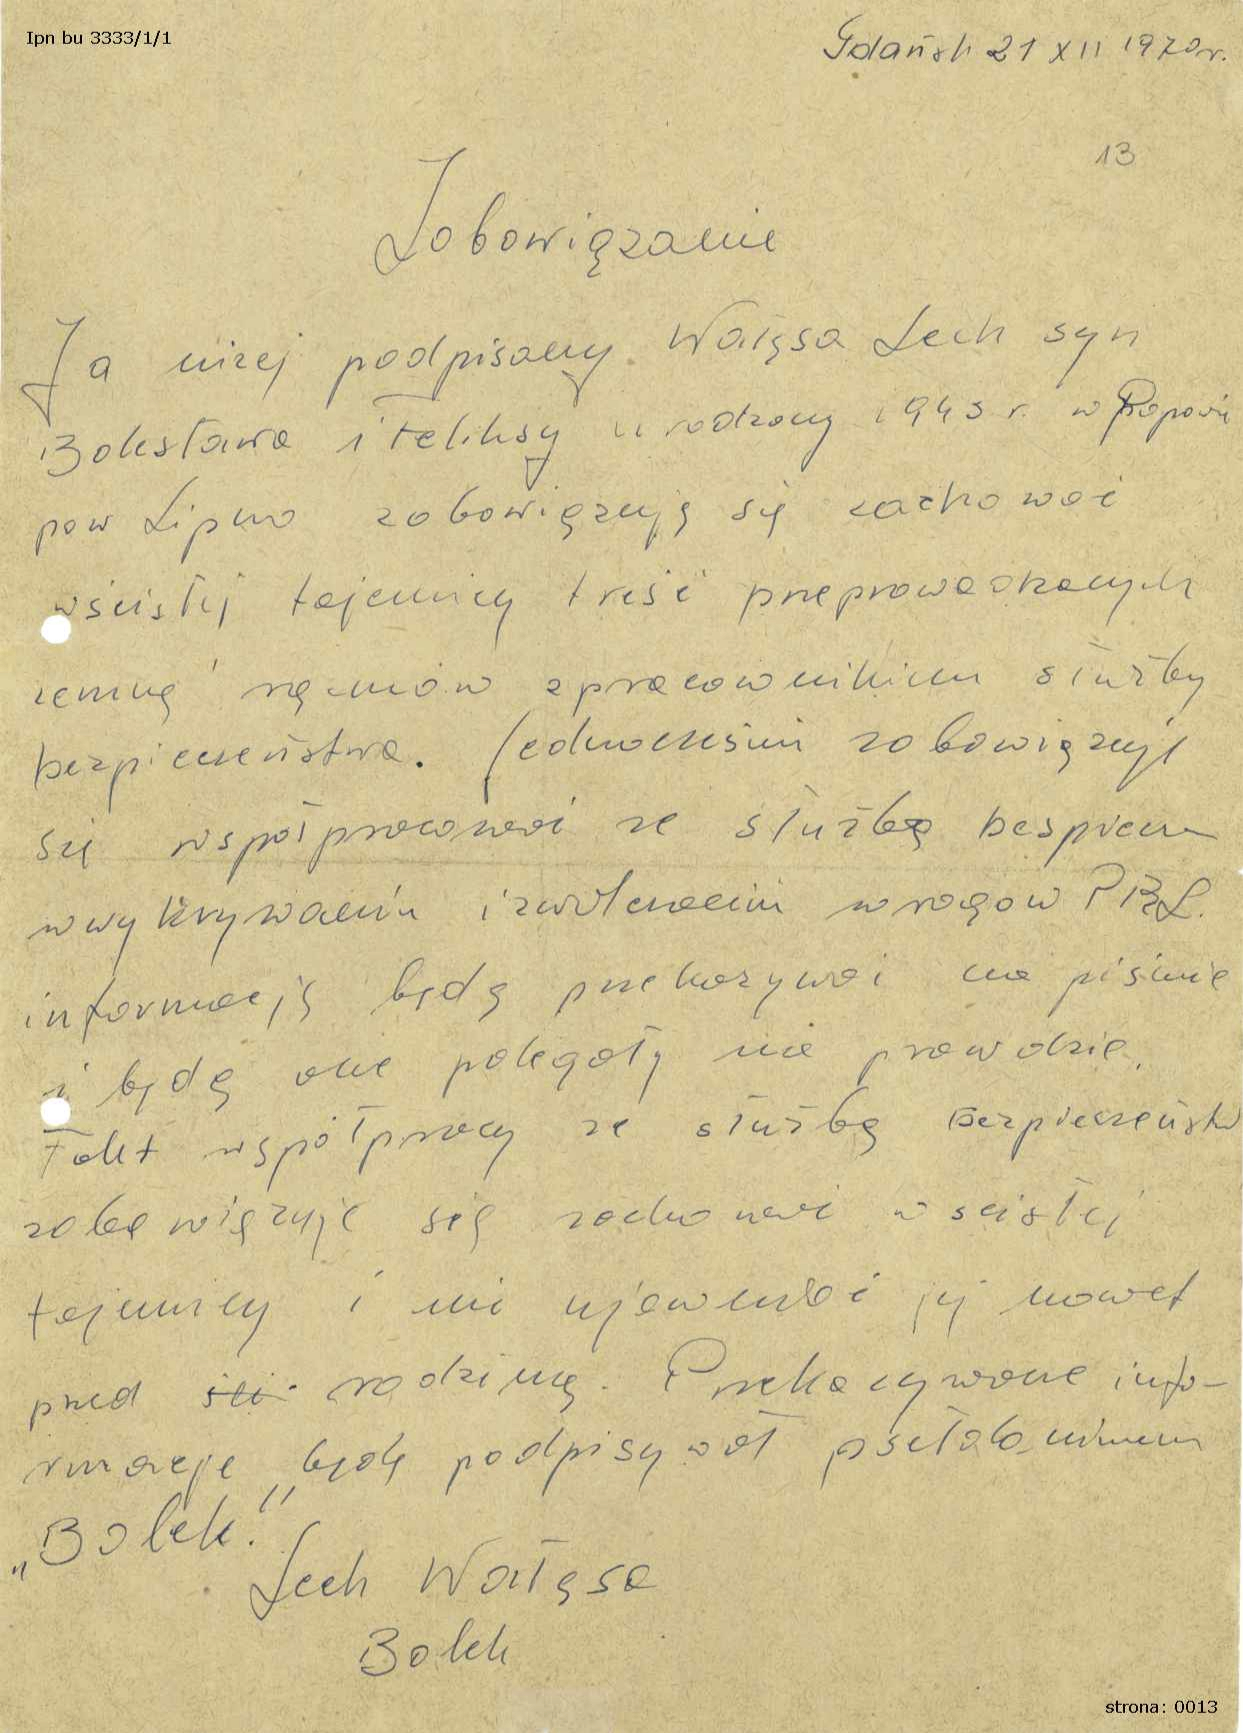 Ipn bu 3333/1/1
Gdańsk 21 XII 1970r.
13
Zobowiązanie
Ja niżej podpisany Wałęsa Lech syn
Bolesława i Feliksy urodzony 1943 r. w Popowie
pow Lipno zobowiązują się zachować
wścisłej tajemnicy treść przeprowadzanych
zemną rązmów z pracownikiem służby
bezpieczeństwa. Jednocześnie zobowiązuję
się współpracować ze służbą bespiecz
wwykrywaniu izwalczaniu wrogow PRL.
informacją będą przekazywać na piśmie
i będą one polegały nie prawdzie.
Fakt współpracy ze służbą Bezpieczeństw
zobowiązuję się zachować w scisłej
tajemnicy i nie ujawniać jej nawet
przed rodziną. Przekazywane info-
rmacje będę podpisywał psełdonimem
„Bolek".
Lech Wałęsa
Bolek
strona: 0013